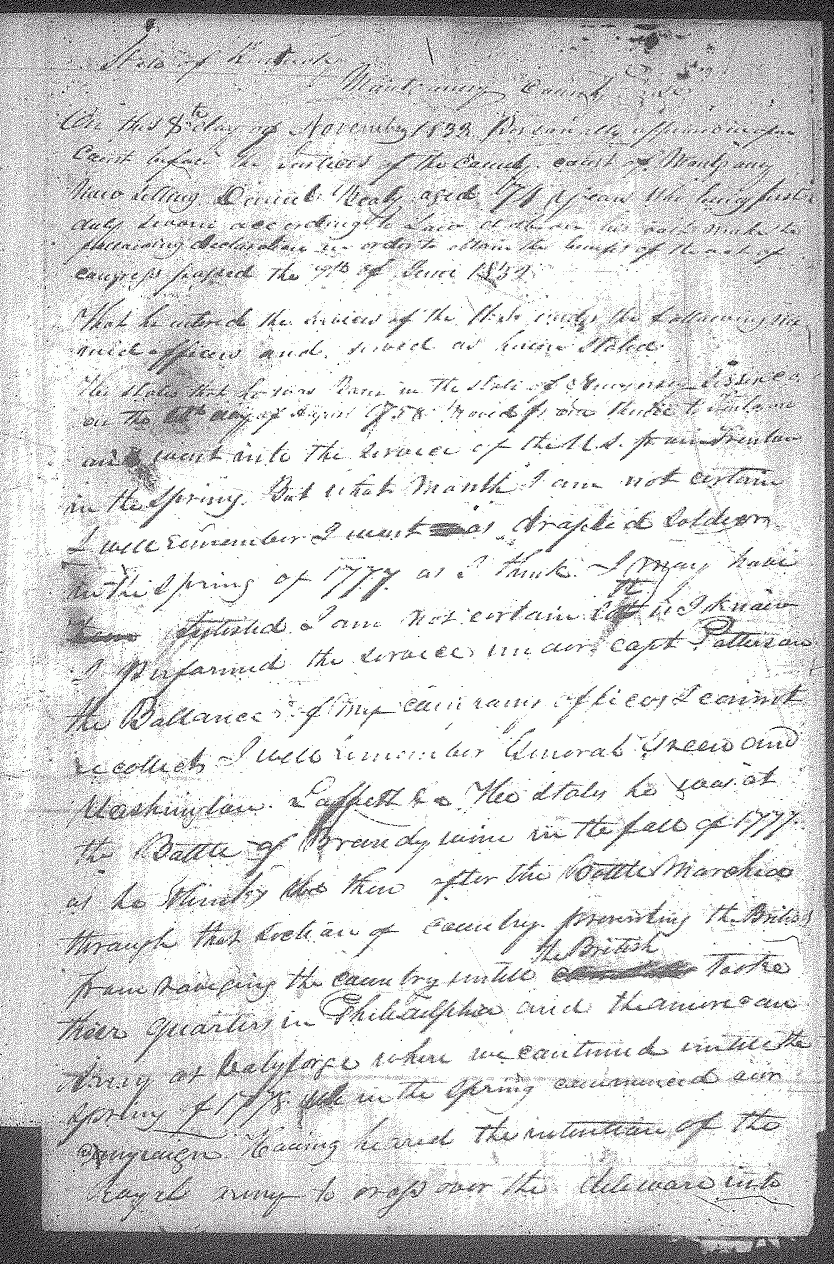 State of Kentucky
Montgomery County
On this 8th day of November 1832 Personally appeared in open
Court before the Justices of the County court of Montgomery
Now sitting Daniel aged 74 years who being first
duly sworn according to Law doth on his oath make the
following declaration in order to obtain the benefit of the act of
congress passed the 7th of June 1832
That he entered the service of the under the following na
med officers and served as herein stated
He states that he was Born in the state of Sussex co
on the day of August 1758 moved from thence to
and went into the service of the U.S. from Trenton
in the spring. But what Month I am not certain
I well remember I went as drafted soldier
in the Spring of 1777 as I think. I may have
I am not certain I know
I performed the service under capt Patterson
the Ballance of my company officers I cannot
recollect I well remember General Green and
Washington. Laffett &c He states he was at
the Battle of Brandywine in the fall of 1777
as he thinks then after the Battle Marched
through that section of country preventing the British
from ravaging the country untill the British Tooke
thier quarters in Philadelphia and the american
Army at Valyforge where we continued untill the
spring of 1778 in the spring commenced our
campaign Having heared the intention of the
Royal army to cross over the deleware into